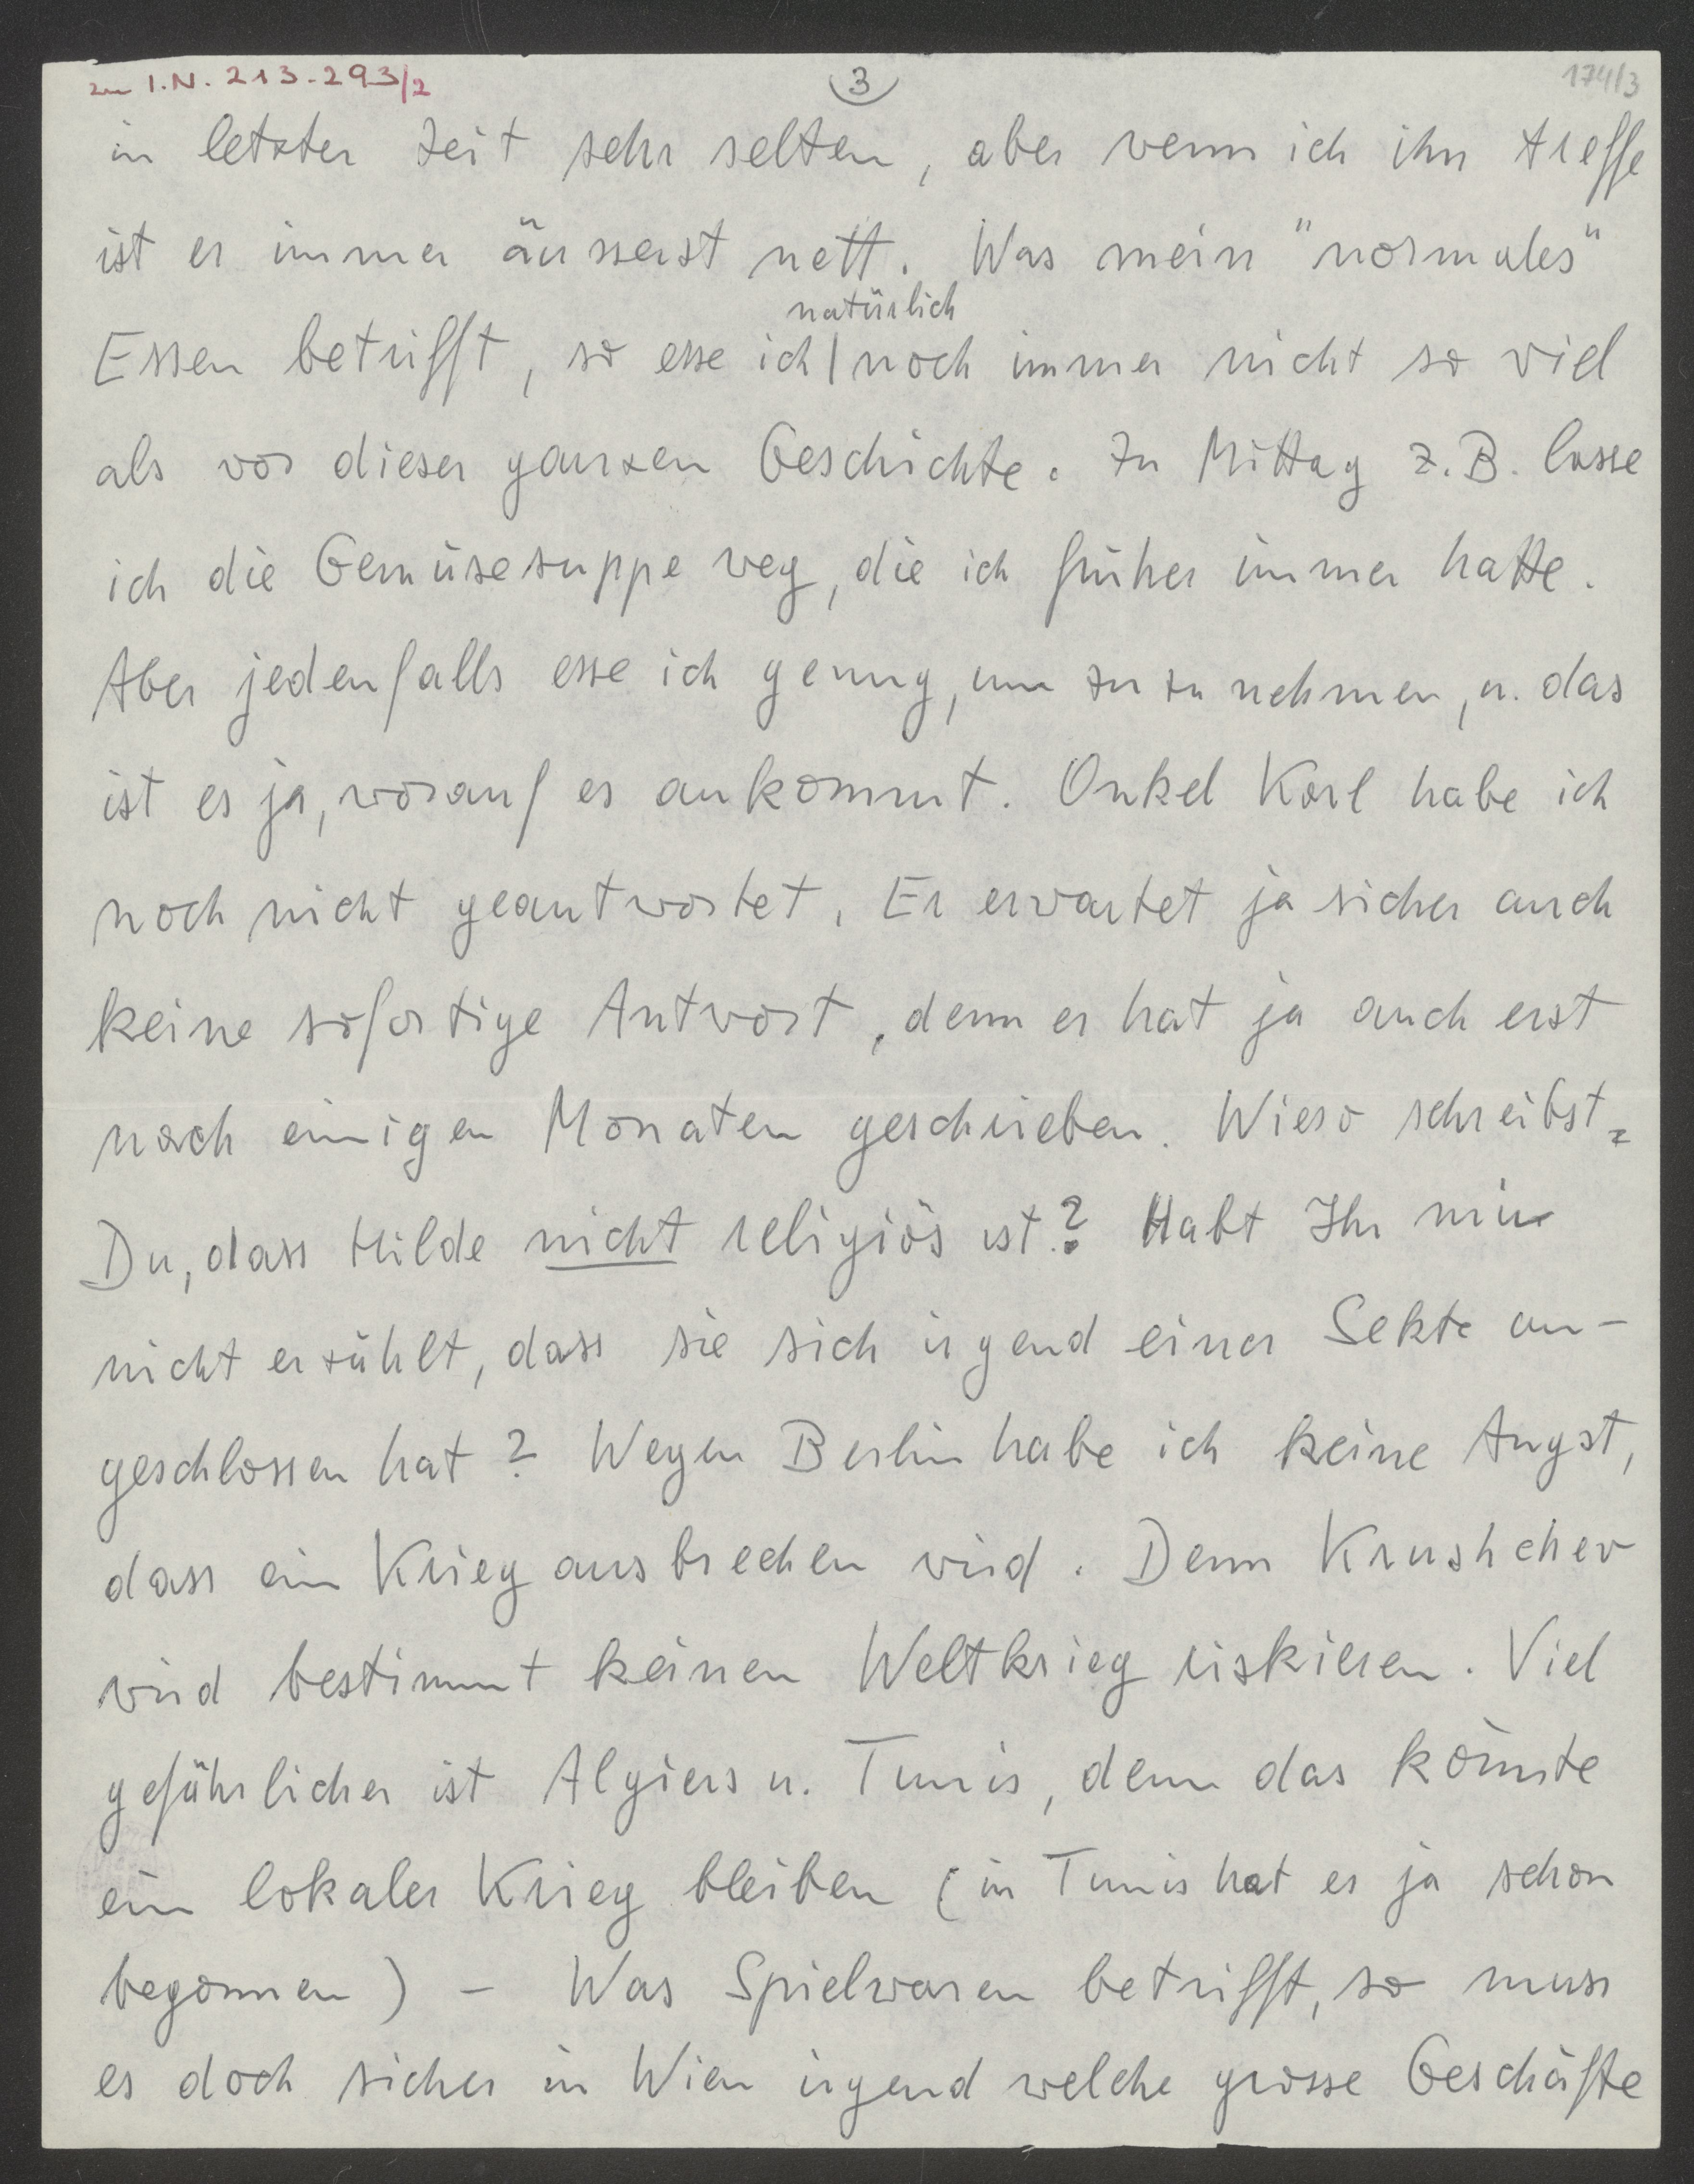 zu I.N. 213.293/2
3
174/3
in letzter Zeit sehr selten, aber wenn ich ihn treffe
ist er immer äusserst nett. Was mein "normales"
natürlich
Essen betrifft, so esse ich | noch immer nicht so viel
als vor dieser ganzen Geschichte. Zu Mittag z.B. lasse
ich die Gemüsesuppe weg, die ich früher immer hatte.
Aber jedenfalls esse ich genug, um zuzunehmen, u. das
ist es ja, worauf es ankommt. Onkel Karl habe ich
noch nicht geantwortet. Er erwartet ja sicher auch
keine sofortige Antwort, denn er hat ja auch erst
nach einigen Monaten geschrieben. Wieso schreibst
Du, dass Hilde nicht religiös ist? Habt Ihr mir
nicht erzählt, dass sie sich irgend einer Sekte an-
geschlossen hat? Wegen Berlin habe ich keine Angst,
dass ein Krieg ausbrechen wird. Denn Krushchev
wird bestimmt keinen Weltkrieg riskieren. Viel
gefährlicher ist Algiers u. Tunis, denn das könnte
ein lokaler Krieg bleiben (in Tunis hat es ja schon
begonnen) - Was Spielwaren betrifft, so muss
es doch sicher in Wien irgend welche grosse Geschäfte